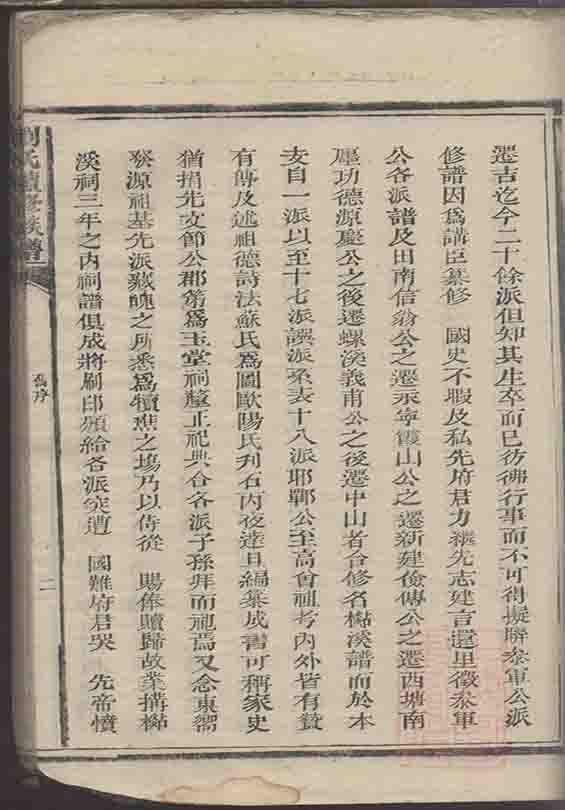 遷吉迄今二十餘派但知其生卒而已彷彿行事而不可得擬聯泰軍公派
修譜因爲講臣纂修 國史不暇及私先府君力襄先志建言還里徵泰軍
公各派譜及田南信翁公之遷永寧霞山公之遷新建儉傳公之遷西塘南
壓功德源慶公之後遷螺溪義甫公之後遷中山者合修名檆溪譜而於本
支自一派以至十七派譔派系表十八派耶鄲公至高曾祖考內外皆有贊
有傳及述祖德詩法蘇氏爲圖歐陽氏刋石丙夜達旦編纂成書可稱家史
猶捐先文節公郡第爲玉堂祠釐正祀典合各派子孫拜而祀焉又念東鄉
發源祖基先派藏魄之所悉爲犢樵之場乃以侍從 賜俸贖歸故業搆檆
溪祠三年之內祠譜俱成將刷印頒給各派突遭 國難府君哭 先帝憤
劉氏續修族譜
舊序
二